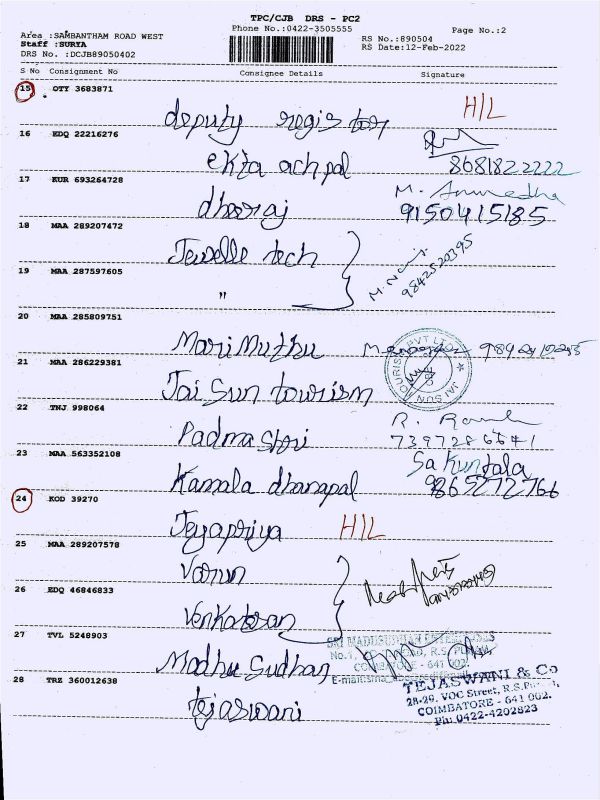 TPC/CJB DRS - PC2
Phone No.:0422-3505555
Page No.:2
Area :SAMBANTHAM ROAD WEST
Staff :SURYA
DRS No. :DCJB89050402
RS No.:890504
RS Date:12-Feb-2022
S No Consignment No Consignee Details Signature
15 OTY 3683871
deputy registor H/L
16 EDQ 22216276
ekta achpal 8681822222
17 KUR 693264728
M. Anumedha
dheeraj 9150415185
18 MAA 289207472
Jewelle tech
9842520395
19 MAA 287597605
"
20 MAA 285809751
MariMuthu
21 MAA 286229381
Jai Sun tourism
22 TNJ 998064
Padma Shri
7397286641
23 MAA 563352108
Sakuntala
Kamala dhanapal 9865272766
24 KOD 39270
Jeyapriya H/L
25 MAA 289207578
Varun
26 EDQ 46846833
Venkatesan
27 TVL 5248903
Madhu Sudhan
COIMBATORE - 641 002.
28 TRZ 360012638
tejaswani
TEJASWANI & Co
28-29, VOC Street, R.S.
COIMBATORE - 641 002.
Ph: 0422-4202823